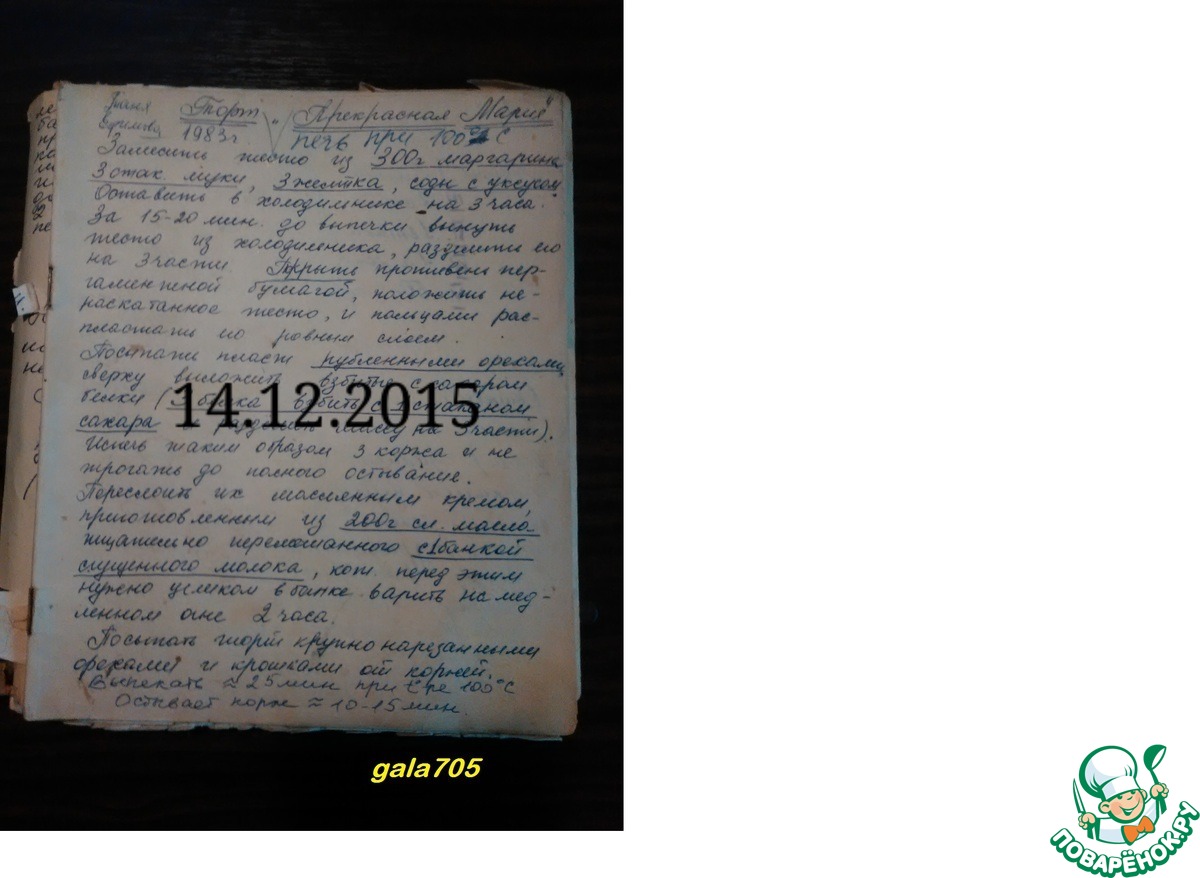 Таня Торт „Прекрасная Мария"
Ефимова 1983г. печь при 100° С
Замесить тесто из 300г маргарина
3 стак. муки, 3 желтка, соды с уксусом.
Оставить в холодильнике на 3 часа.
За 15-20 мин. до выпечки вынуть
тесто из холодильника, разделить его
на 3 части. Покрыть противень пер-
гаментной бумагой, положить не-
раскатанное тесто, и пальцами рас-
пластать его ровным слоем.
Посыпать пласт рубленными орехами,
сверху выложить взбитые с сахаром
белки (3 белка взбить с 1 стаканом
сахара и разделить массу на 3 части).
14.12.2015
Испечь таким образом 3 коржа и не
трогать до полного остывание.
Переслоить их масленным кремом,
приготовленным из 200г сл. масла
тщательно перемешанного с 1 банкой
сгущенного молока, кот. перед этим
нужно целиком в банке варить на мед-
ленном огне 2 часа.
Посыпать торт крупно нарезанными
орехами и крошками от коржей.
Выпекать ≈ 25 мин при t-ре 100°С
Остывает корж ≈ 10-15 мин.
gala705
ПОВАРЁНОК.РУ